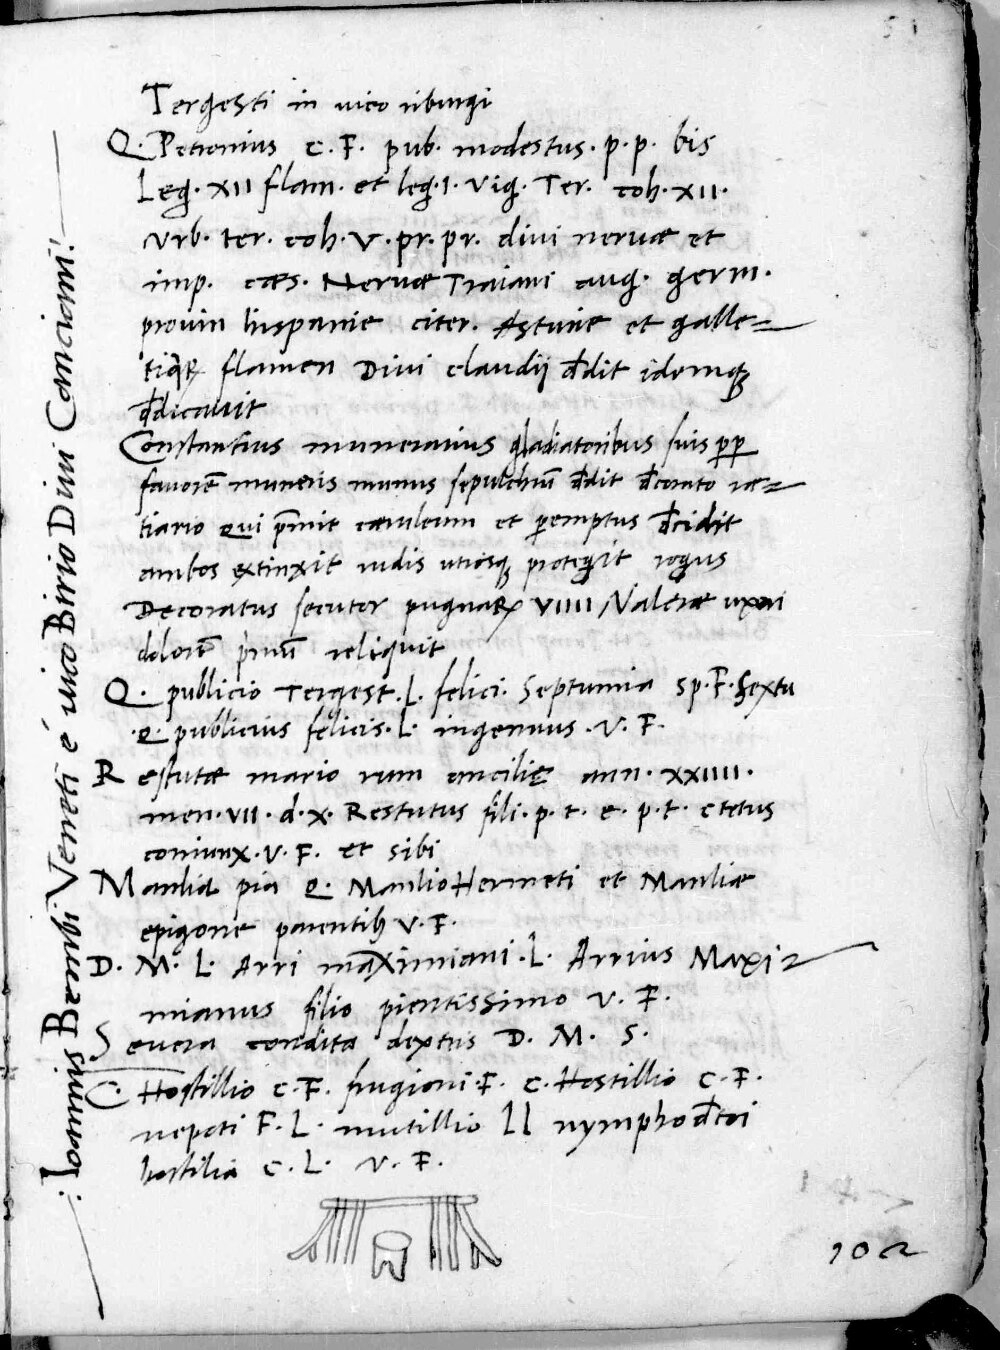 51
Tergesti in vico riburgi
Q. Petronius C. F. pub. modestus. p. p. bis
Leg. XII flam. et leg. I. vig. Ter. coh. XII.
vrb. ter. coh. V. pr. pr. divi nervæ et
imp. cæs. Nervæ Traiani aug. germ.
provin hispanie citer. Asturie et galle=
tiqꝝ flamen Divi claudij ddit idemqꝫ
ddicavit
Constantius munerarius gladiatoribus suis pp
favorē muneris munus sepulchrū ddit dcorato ræ=
tiario qui pmit cæruleum et pemptus dcidit
ambos extinxit rudis utrosqꝫ protegit rogus
Decoratus secutor pugnaꝝ VIIII Valeræ uxori
dolorē pmū reliquit
Q. publicio Tergest. L. felici. Septumia Sp. F. Sexta
Q. publicius felicis. L. ingenuus. V. F.
Restutæ mario rum ancilie ann. XXIIII.
men. VII. d. X. Restutus fili. p. t. e. p. t. ctetus
coniunx. V. F. et sibi
Manlia pia Q. Manlio Hermeti et Manliæ
epigone parentib V. F.
D. M. L. Arri maximiani. L. Arrius Maxi=
mianus filio pientissimo V. F.
Severa condita dextris D. M. S.
C. Hostillio C. F. frugioni. F. C. Hostillio C. F.
nepoti F. L. mutillio Ll nymphodtoi
hostilia C. L. V. F.
: Ioannis Bembi Veneti é vico Birio Divi Canciani:
102